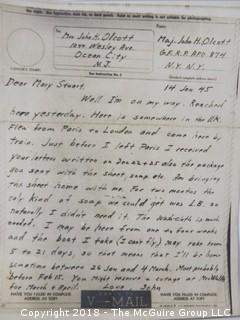 Use regular envelope, pen, dark ink. Small writing is not suitable for photographing.
Mrs John H. Olcott
1022 Wesley Ave.
Ocean City
N.J.
Maj. John H. Olcott
G.F.R.P. APO 874
N.Y. N.Y.
14 Jan 45
See Instruction No. 2
Dear Mary Stuart
Well I'm on my way. Reached
here yesterday. Here is somewhere in the U.K.
Flew from Paris to London and came here by
train. Just before I left Paris I received
your letters written on Dec 22 + 25 also the package
you sent with the sheet, soap etc. Am bringing
the sheet home with me. For two months the
only kind of soap we could get was L.B. so
naturally I didn't need it. The is much
needed. I may be here from one to four weeks
and the boat I take (I can't fly) may take from
5 to 21 days, so that means that I'll be home
sometime between 26 Jan and 4 March. Most probably
before Feb 15. You might reserve a cottage at
for March + April. Love John
HAVE YOU FILLED IN COMPLETE
ADDRESS AT TOP?
V-MAIL
HAVE YOU FILLED IN COMPLETE
ADDRESS AT TOP?
Copyright 2018 - The McGraw Group LLC